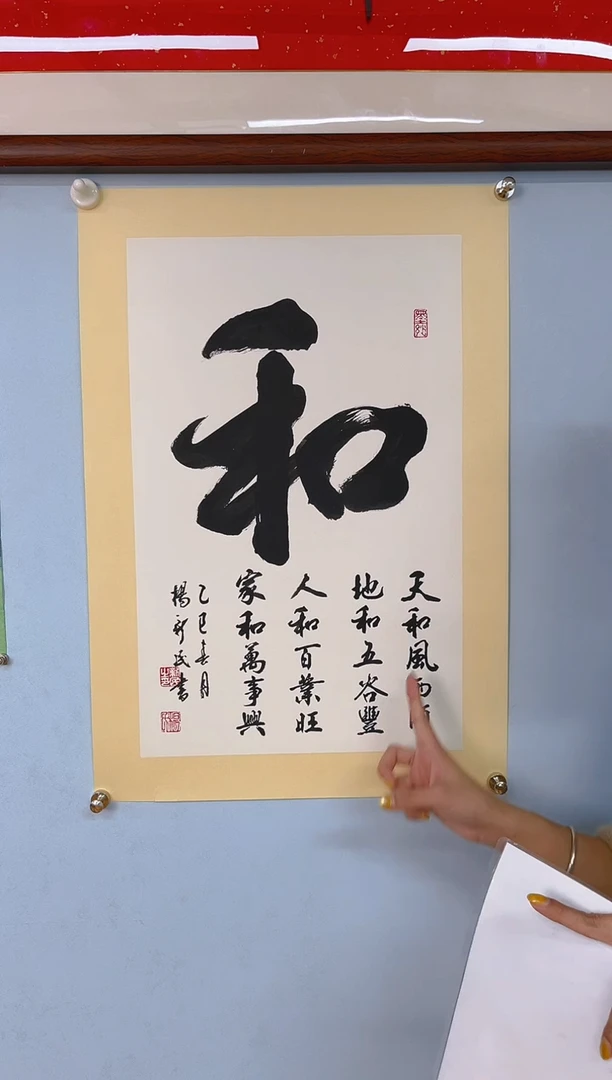 和
天和風雨
地和五谷豐
人和百業旺
家和萬事興
乙巳春月
楊新民書